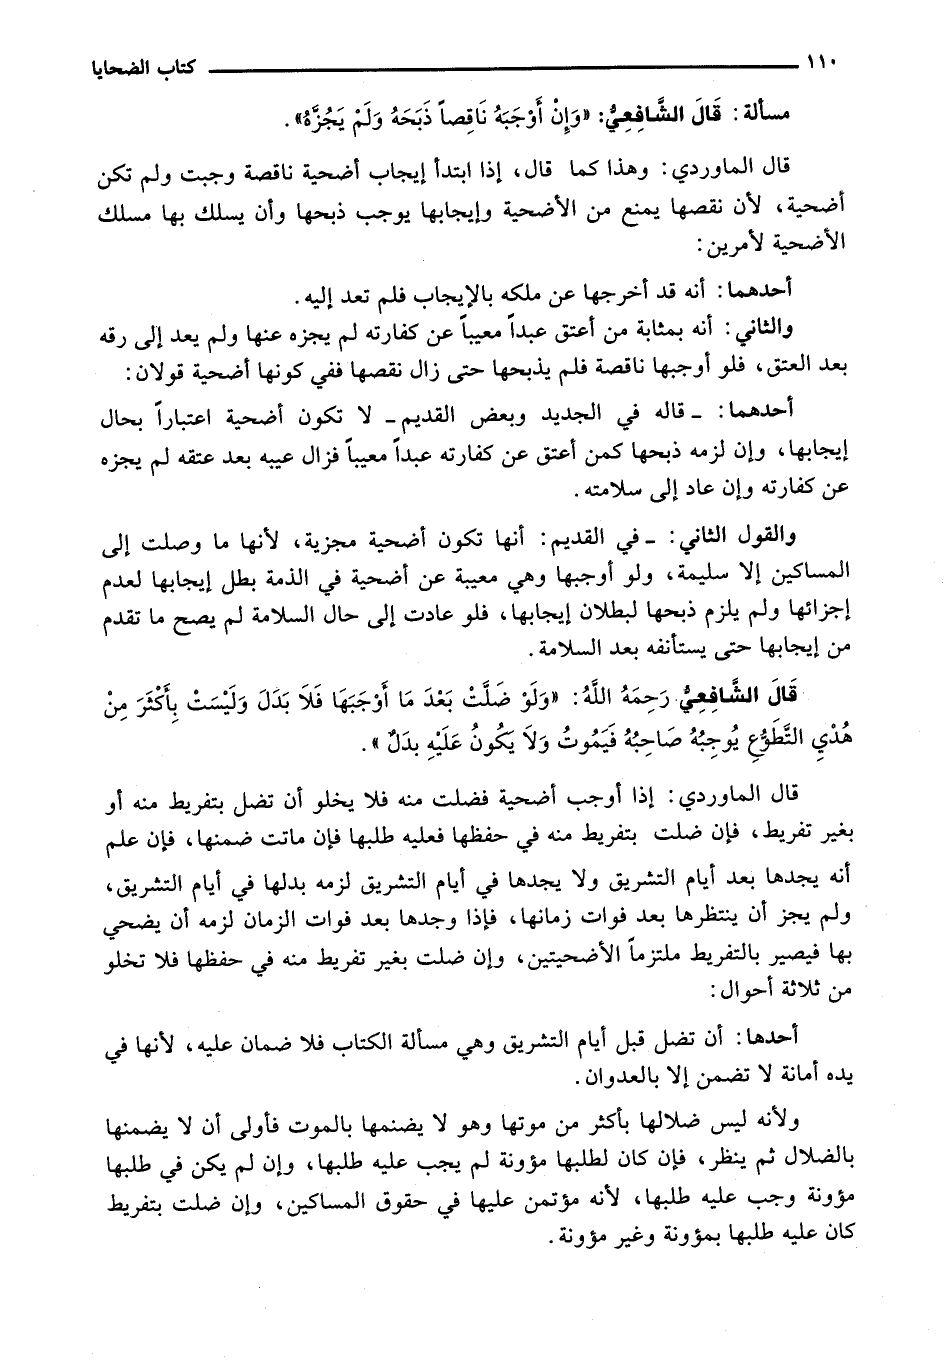 ١١٠ كتاب الضحايا
مسألة: قَالَ الشَّافِعِيُّ: «وَإِنْ أَوْجَبَهُ نَاقِصاً ذَبَحَهُ وَلَمْ يَجُزَّهُ».
قال الماوردي: وهذا كما قال، إذا ابتدأ إيجاب أضحية ناقصة وجبت ولم تكن
أضحية، لأن نقصها يمنع من الأضحية وإيجابها يوجب ذبحها وأن يسلك بها مسلك
الأضحية لأمرين:
أحدهما: أنه قد أخرجها عن ملكه بالإيجاب فلم تعد إليه.
والثاني: أنه بمثابة من أعتق عبداً معيباً عن كفارته لم يجزه عنها ولم يعد إلى رقه
بعد العتق، فلو أوجبها ناقصة فلم يذبحها حتى زال نقصها ففي كونها أضحية قولان:
أحدهما: ـ قاله في الجديد وبعض القديم ـ لا تكون أضحية اعتباراً بحال
إيجابها، وإن لزمه ذبحها كمن أعتق عن كفارته عبداً معيباً فزال عيبه بعد عتقه لم يجزه
عن كفارته وإن عاد إلى سلامته.
والقول الثاني: ـ في القديم: أنها تكون أضحية مجزية، لأنها ما وصلت إلى
المساكين إلا سليمة، ولو أوجبها وهي معيبة عن أضحية في الذمة بطل إيجابها لعدم
إجزائها ولم يلزم ذبحها لبطلان إيجابها، فلو عادت إلى حال السلامة لم يصح ما تقدم
من إيجابها حتى يستأنفه بعد السلامة.
قَالَ الشَّافِعِيُّ رَحِمَهُ اللَّهُ: «وَلَوْ ضَلَّتْ بَعْدَ مَا أَوْجَبَهَا فَلَا بَدَلَ وَلَيْسَتْ بِأَكْثَرَ مِنْ
هُدْيِ التَّطَوُّعِ يُوجِبُهُ صَاحِبُهُ فَيَمُوتُ وَلَا يَكُونُ عَلَيْهِ بدَلٌ».
قال الماوردي: إذا أوجب أضحية فضلت منه فلا يخلو أن تضل بتفريط منه أو
بغير تفريط، فإن ضلت بتفريط منه في حفظها فعليه طلبها فإن ماتت ضمنها، فإن علم
أنه يجدها بعد أيام التشريق ولا يجدها في أيام التشريق لزمه بدلها في أيام التشريق،
ولم يجز أن ينتظرها بعد فوات زمانها، فإذا وجدها بعد فوات الزمان لزمه أن يضحي
بها فيصير بالتفريط ملتزماً الأضحيتين، وإن ضلت بغير تفريط منه في حفظها فلا تخلو
من ثلاثة أحوال:
أحدها: أن تضل قبل أيام التشريق وهي مسألة الكتاب فلا ضمان عليه، لأنها في
يده أمانة لا تضمن إلا بالعدوان.
ولأنه ليس ضلالها بأكثر من موتها وهو لا يضنمها بالموت فأولى أن لا يضمنها
بالضلال ثم ينظر، فإن كان لطلبها مؤونة لم يجب عليه طلبها، وإن لم يكن في طلبها
مؤونة وجب عليه طلبها، لأنه مؤتمن عليها في حقوق المساكين، وإن ضلت بتفريط
كان عليه طلبها بمؤونة وغير مؤونة.